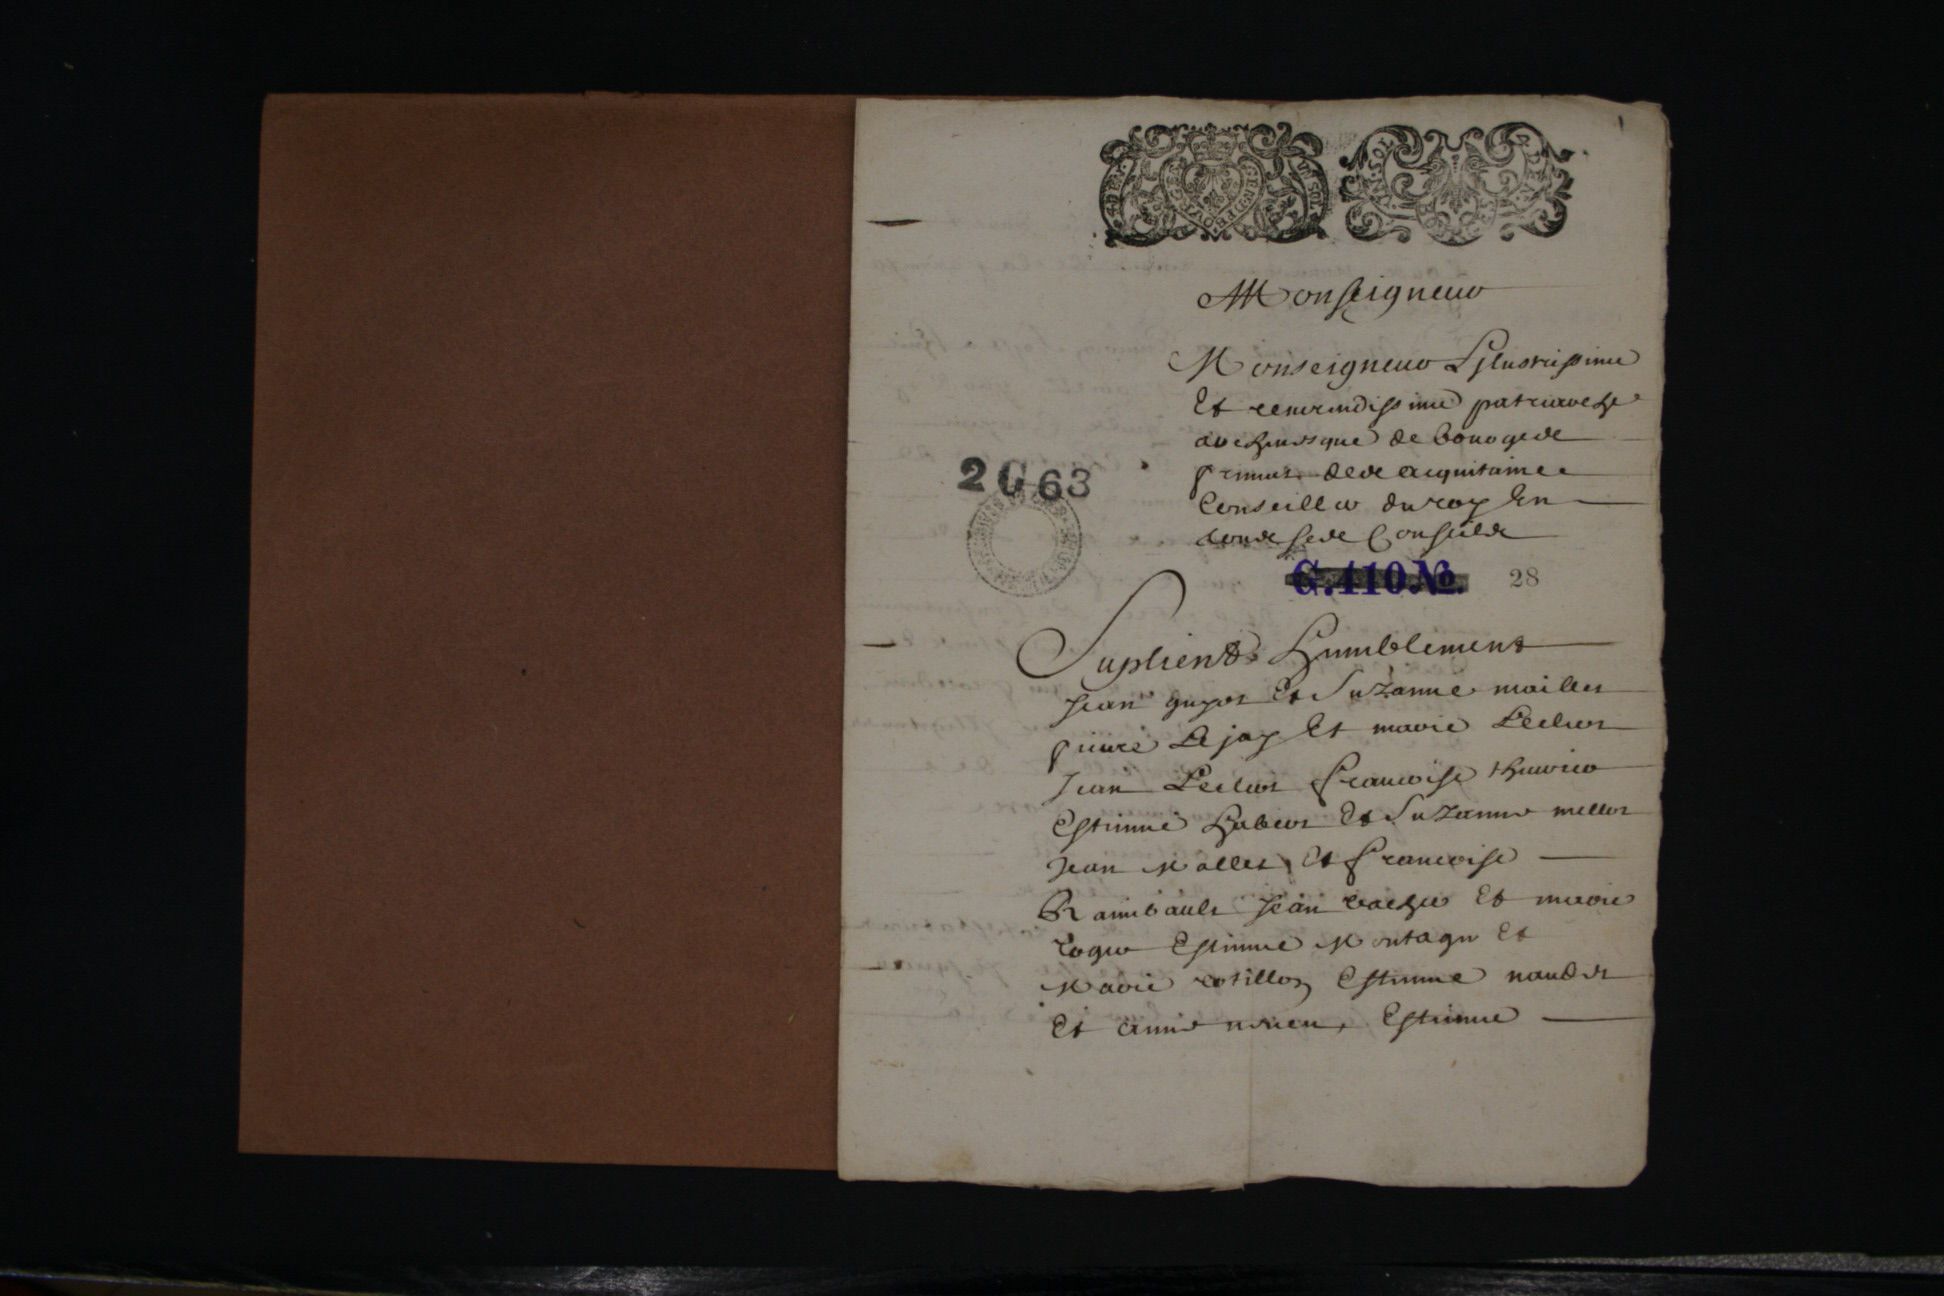 Monseigneur
Monseigneur Lillustrissime
Et reverendissime patriarche
archevesque de bourges
primat des aquitaines
Conseiller du roy En
tous ses Conseils
2 G 63
G.410.No. 28
Suplient humblement
Jean guyot Et Suzanne maillet
pierre Lejay Et marie Leclerc
Jean Leclerc francoise
Estienne habert Et Suzanne mellot
Jean Mallet Et francoise
Raimbault Jean vacher Et marie
roger Estienne Montagu Et
Marie cotillon Estienne naudet
Et anne Estienne